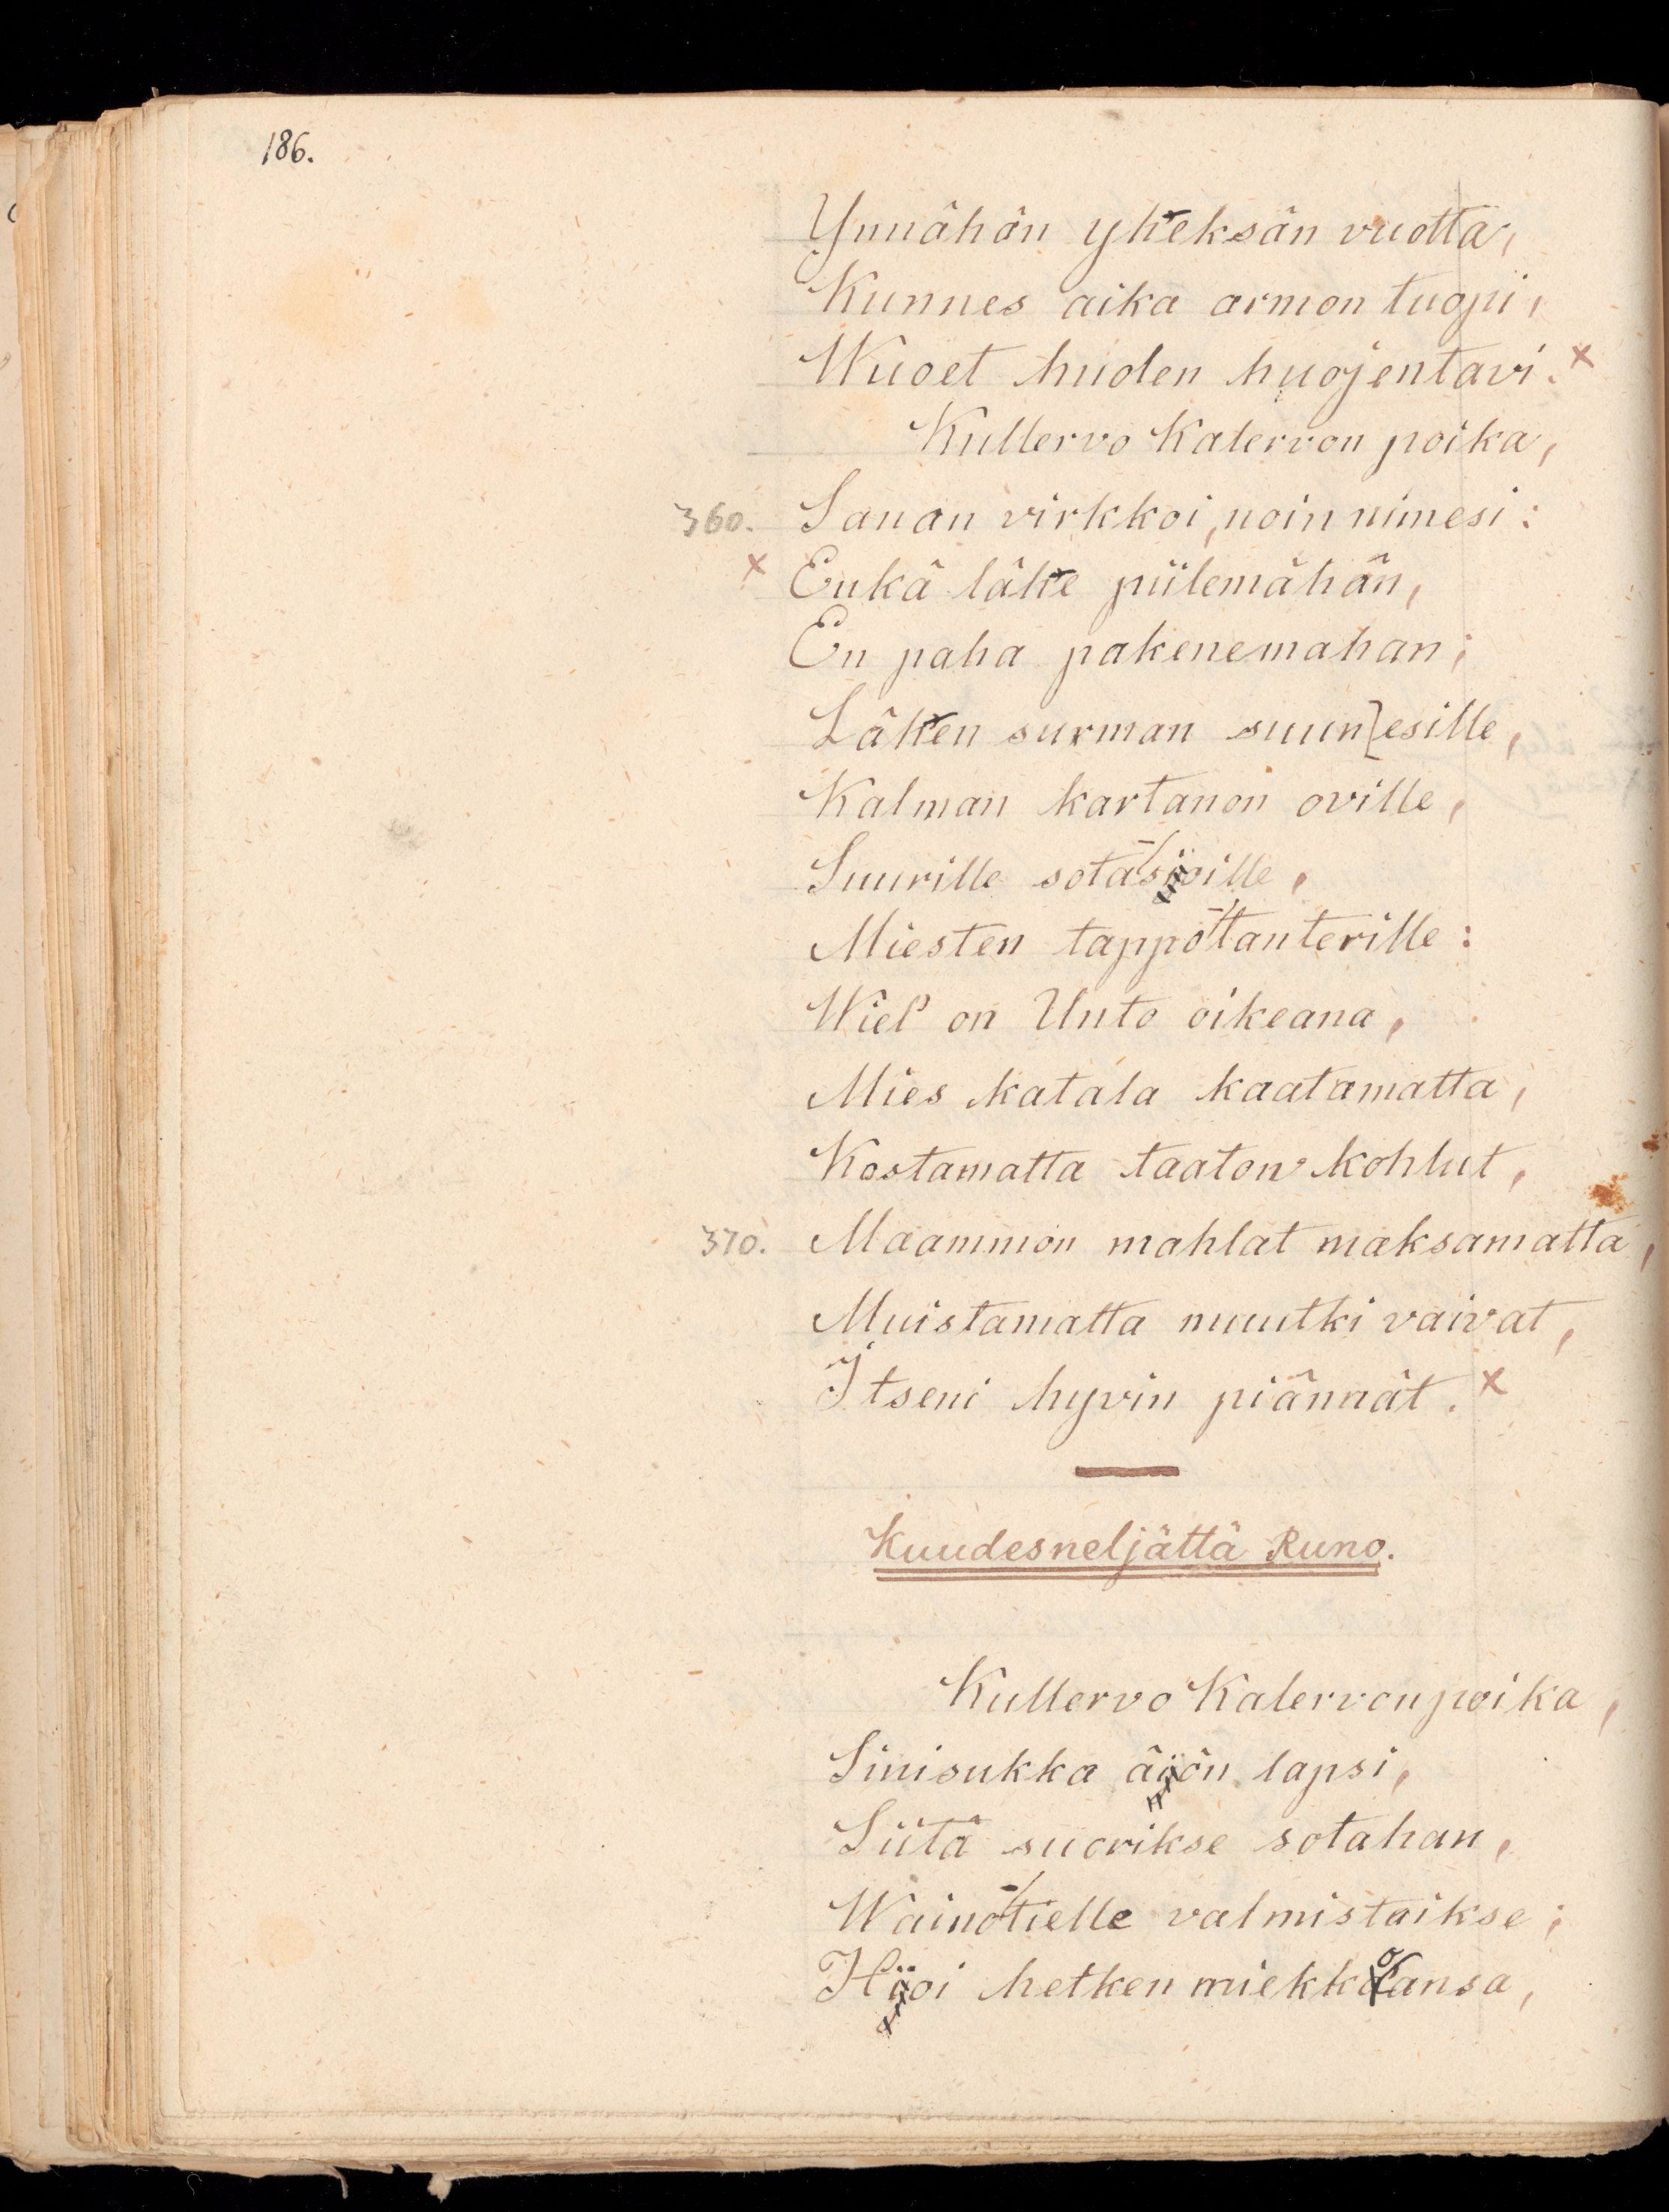 186.
Ynnähän yheksän vuotta,
Kunnes aika armon tuopi,
Wuoet huolen huojentavi. x
Kullervo Kalervon poika,
360. Sanan virkkoi, noin nimesi:
x Enkä lähe piilemähän,
En paha pakenemahan;
Lähen surman suun]esille,
Kalman kartanon oville,
Suurille sotasijoille,
Miesten tappotanterille:
Wiel' on Unto oikeana,
Mies katala kaatamatta,
Kostamatta taaton kohlut,
370. Maammon mahlat maksamatta,
Muistamatta muutki vaivat,
Itseni hyvin piännät. x
Kuudesneljättä Runo.
Kullervo Kalervon poika,
Sinisukka äijön lapsi,
Siitä suorikse sotahan,
Wainotielle valmistaikse;
Hijoi hetken miekkoansa,